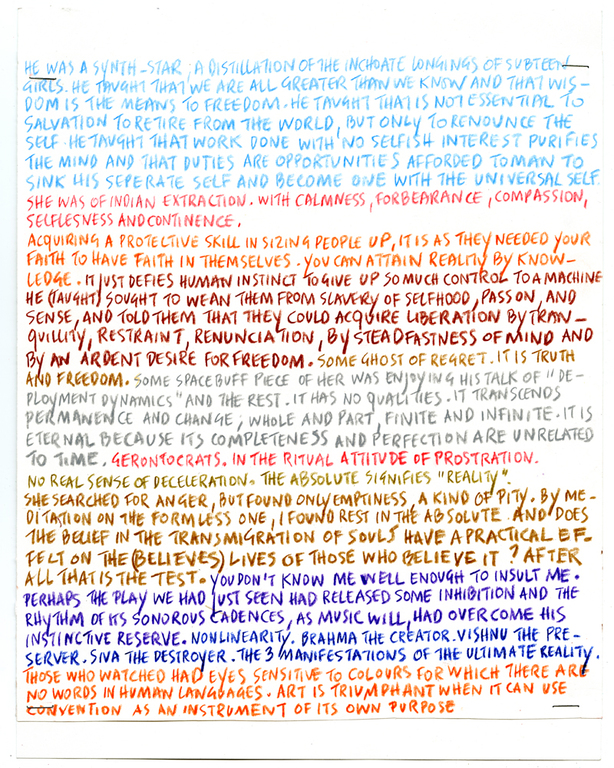 HE WAS A SYNTH-STAR; A DISTILLATION OF THE INCHOATE LONGINGS OF SUBTEEN
GIRLS. HE TAUGHT THAT WE ARE ALL GREATER THAN WE KNOW AND THAT WIS-
DOM IS THE MEANS TO FREEDOM. HE TAUGHT THAT IS NOT ESSENTIAL TO
SALVATION TO RETIRE FROM THE WORLD, BUT ONLY TO RENOUNCE THE
SELF. HE TAUGHT THAT WORK DONE WITH NO SELFISH INTEREST PURIFIES
THE MIND AND THAT DUTIES ARE OPPORTUNITIES AFFORDED TO MAN TO
SINK HIS SEPERATE SELF AND BECOME ONE WITH THE UNIVERSAL SELF.
SHE WAS OF INDIAN EXTRACTION. WITH CALMNESS, FORBEARANCE, COMPASSION,
SELFLESNESS AND CONTINENCE.
ACQUIRING A PROTECTIVE SKILL IN SIZING PEOPLE UP, IT IS AS THEY NEEDED YOUR
FAITH TO HAVE FAITH IN THEMSELVES. YOU CAN ATTAIN REALITY BY KNOW-
LEDGE. IT JUST DEFIES HUMAN INSTINCT TO GIVE UP SO MUCH CONTROL TO A MACHINE
HE (TAUGHT) SOUGHT TO WEAN THEM FROM SLAVERY OF SELFHOOD, PASSON, AND
SENSE, AND TOLD THEM THAT THEY COULD ACQUIRE LIBERATION BY TRAN-
QUILLITY, RESTRAINT, RENUNCIATION, BY STEADFASTNESS OF MIND AND
BY AN ARDENT DESIRE FOR FREEDOM. SOME GHOST OF REGRET. IT IS TRUTH
AND FREEDOM. SOME SPACEBUFF PIECE OF HER WAS ENJOYING HIS TALK OF "DE-
PLOYMENT DYNAMICS" AND THE REST. IT HAS NO QUALITIES. IT TRANSCENDS
PERMANENCE AND CHANGE; WHOLE AND PART, FINITE AND INFINITE. IT IS
ETERNAL BECAUSE ITS COMPLETENESS AND PERFECTION ARE UNRELATED
TO TIME. GERONTOCRATS. IN THE RITUAL ATTITUDE OF PROSTRATION.
NO REAL SENSE OF DECELERATION. THE ABSOLUTE SIGNIFIES "REALITY".
SHE SEARCHED FOR ANGER, BUT FOUND ONLY EMPTINESS, A KIND OF PITY. BY ME-
DITATION ON THE FORMLESS ONE, I FOUND REST IN THE ABSOLUTE. AND DOES
THE BELIEF IN THE TRANSMIGRATION OF SOULS HAVE A PRACTICAL EF-
FELT ON THE (BELIEVES) LIVES OF THOSE WHO BELIEVE IT? AFTER
ALL THAT IS THE TEST. YOU DON'T KNOW ME WELL ENOUGH TO INSULT ME.
PERHAPS THE PLAY WE HAD JUST SEEN HAD RELEASED SOME INHIBITION AND THE
RHYTHM OF ITS SONOROUS CADENCES, AS MUSIC WILL, HAD OVERCOME HIS
INSTINCTIVE RESERVE. NONLINEARITY. BRAHMA THE CREATOR. VISHNU THE PRE-
SERVER. SIVA THE DESTROYER. THE 3 MANIFESTATIONS OF THE ULTIMATE REALITY.
THOSE WHO WATCHED HAD EYES SENSITIVE TO COLOURS FOR WHICH THERE ARE
NO WORDS IN HUMAN LANGUAGES. ART IS TRIUMPHANT WHEN IT CAN USE
CONVENTION AS AN INSTRUMENT OF ITS OWN PURPOSE